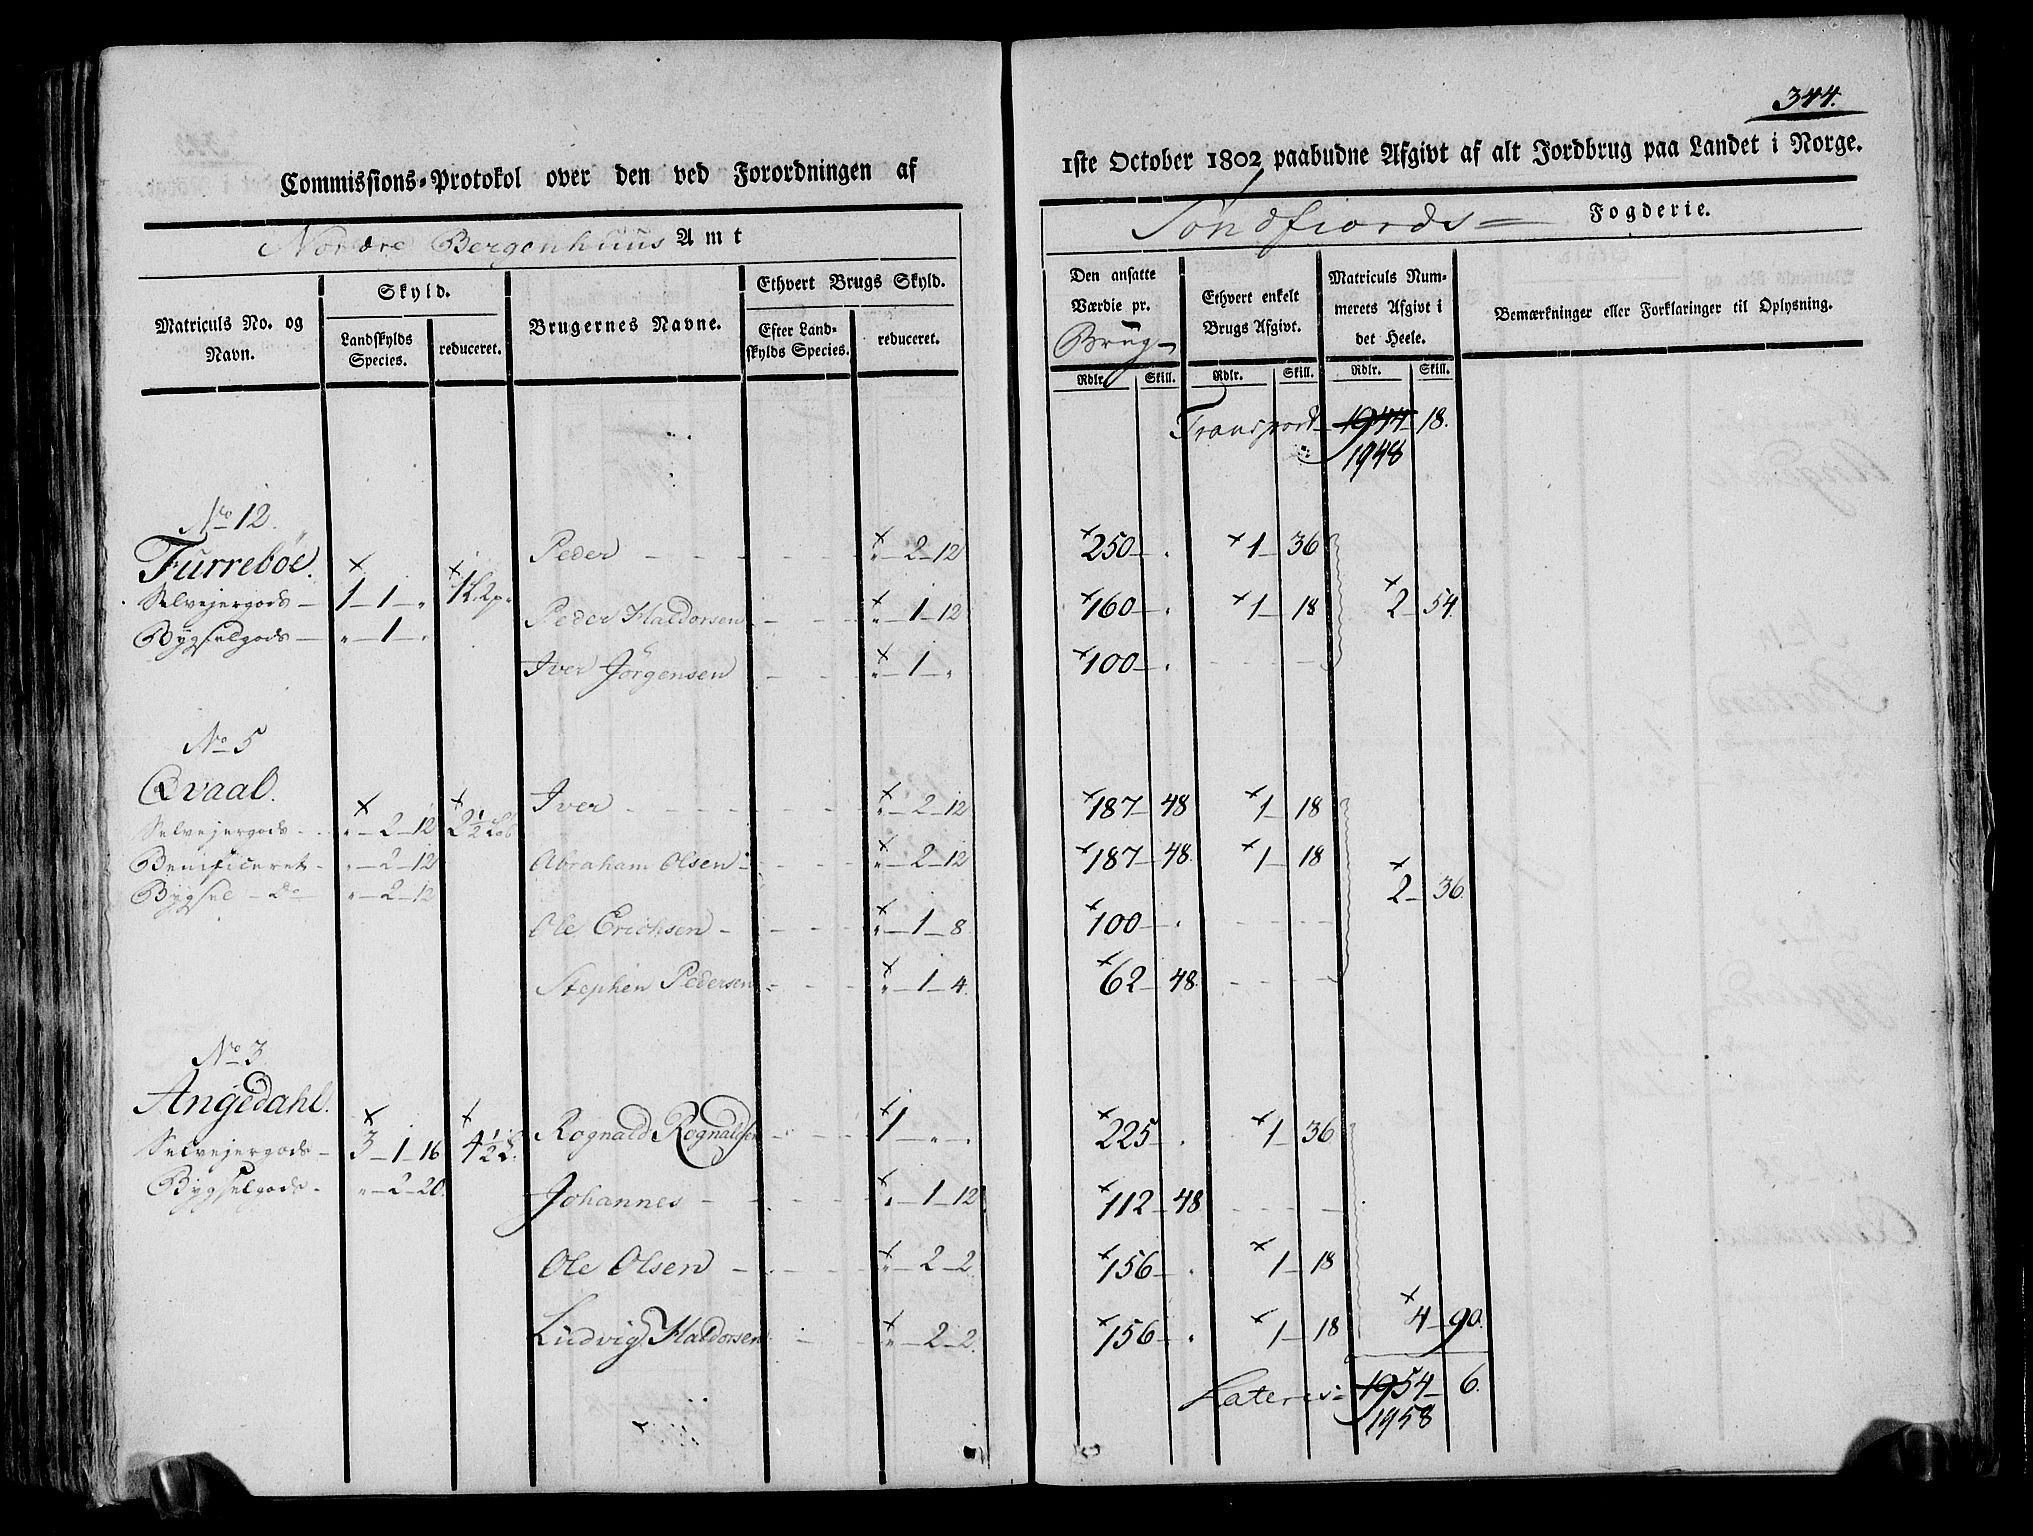 344.
Commissions-Protokol over den ved Forordningen af
1ste October 1802 paabudne Afgivt af alt Jordbrug paa Landet i Norge.
Nordre Bergenhuus Amt
Söndfiords Fogderie.
Matriculs No. og Navn.
Skyld.
Landskylds Species.
reduceret.
Brugernes Navne.
Ethvert Brugs Skyld.
Efter Landskylds Species.
reduceret.
Den ansatte Værdie pr. Brug
Ethvert enkelt Brugs Afgivt.
Matriculs Nummerets Afgivt i det Heele.
Bemærkninger eller Forklaringer til Oplysning.
Rdlr. Skill. Rdlr. Skill. Rdlr. Skill.
Transport 1944 18.
1948
No 12.
Furreböe.
Peder - - - " - 2 - 12 250 - " 1 - 36
Selvejergods - 1 - 1 - "
Peder Haldorsen - - " - 1 - 12 160 - " 1 - 18 2 - 54
Bygselgods - " - 1 - "
Iver Jörgensen - - " - 1 - " 100 - " - - -
No 5
Qvaal.
Iver - - - " - 2 - 12 187 - 48 1 - 18
Selvejergods - " - 2 - 12
Beneficeret - " - 2 - 12
Abraham Olsen - " - 2 - 12 187 - 48 1 - 18
Bygsel - do - " - 2 - 12
2 - 36.
Ole Erichsen - - " - 1 - 8 100 - " - - -
Stephen Pedersen - - " - 1 - 4 62 - 48 - - -
No 3
Angedahl.
Rognald Rognaldsen - - 1 - " - " 225 - " 1 - 36
Selvejergods - 3 - 1 - 16 4 1/2
Bygselgods - " - 2 - 20.
Johannes - - " - 1 - 12 112 - 48 - - -
Ole Olsen - - " - 2 - 2 156 - " 1 - 18
Ludvig Haldorsen - " - 2 - 2 156 - " 1 - 18 4 - 90.
Lateris 1954 - 6.
1958